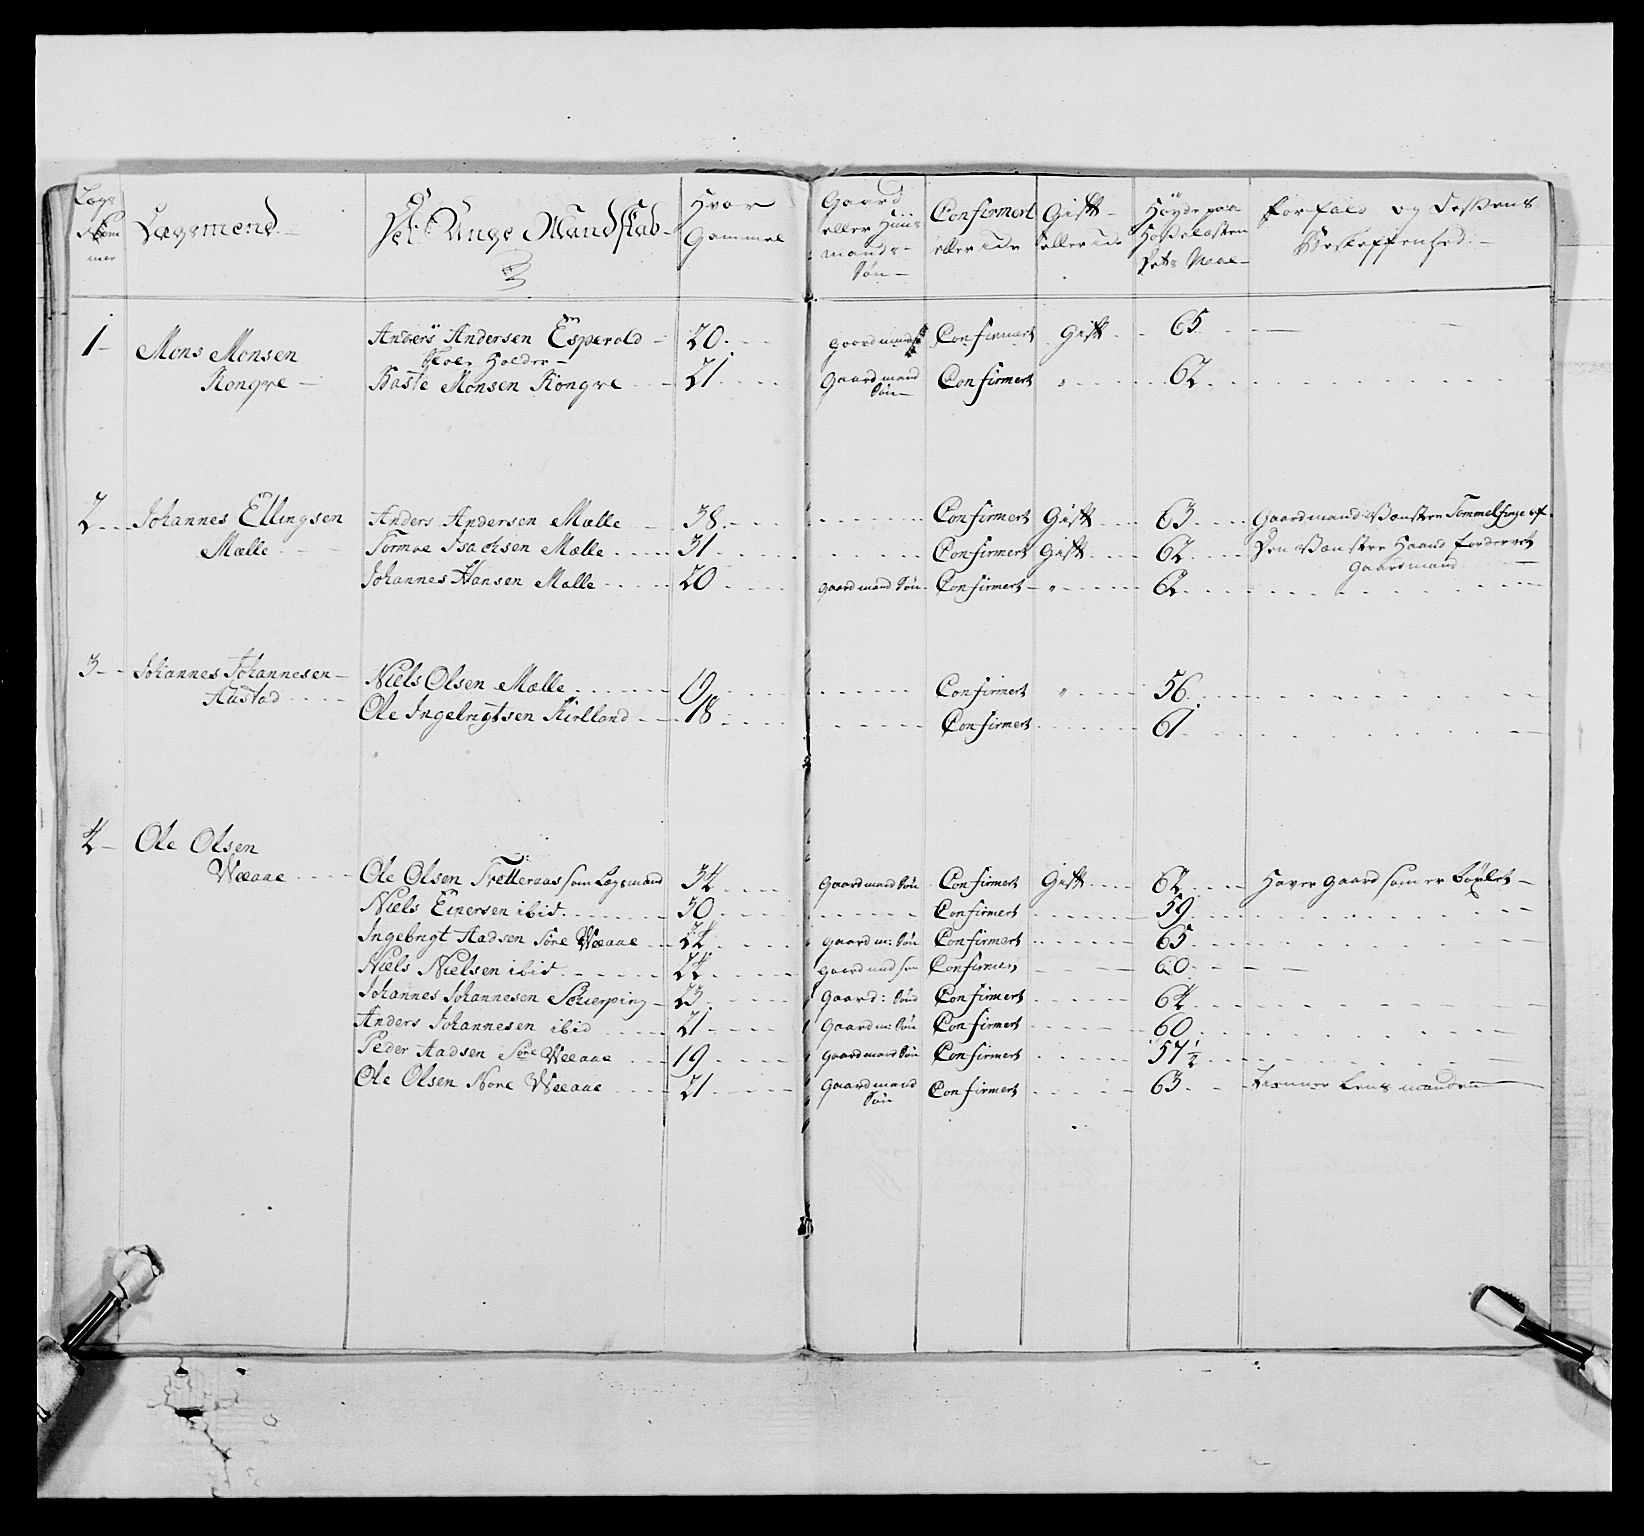 Lægs Num mer | Lægsmend | Det Unge Mandskab | Hvor Gammel | Gaard eller Huus mands Søn | Confirmert eller ide | Gift eller ide | Høyde paa | Forfald og dessens Beskaffenhed
1 Mons Monsen | Anders Andersen Esperold | 20 | gaardmand | Confirmert | Gift | 65
Skole Holder
Kongre | Baste Monsen Kongre | 21 | Gaardmand Søn | Confirmert | " | 62
2 Johannes Ellingsen | Anders Andersen Mælle | 38 | Confirmert | Gift | 63 | Gaardmand Venstre Tommelfinge af
Mælle | Tormoe Isachsen Mælle | 31 | Confirmert | Gift | 62 | Den Venstre Haand fordervet
gaardmand
Johannes Hansen Mælle | 20 | gaardmand Søn | Confirmert | " | 62
3 Johannes Johannesen | Niels Olsen Mælle | 19 | Confirmert | " | 56
Aastad | Ole Ingebrigtsen Kirlland | 18 | Confirmert | 61
4 Ole Olsen
Wæaae | Ole Olsen Tretteraas som Lægsmand | 34 | gaardmand Søn | Confirmert | Gift | 62 | Haver gaard som er bøxlet
Niels Einersen ibid | 30 | Confirmert | 59
Ingebrigt Aadsen Søre Wæaae | 24 | gaardm: Søn | Confirmert | 65
Niels Nielsen ibid | 24 | gaardmand søn | Confirmert | 60
Johannes Johannesen | 23 | gaard: Søn | Confirmert | 62
Anders Johannesen ibid | 21 | gaardm: Søn | Confirmert | 60
Peder Aadsen Søre Weeaae | 19 | gaardmand Søn | Confirmert | 57½
Ole Olsen Nore Weeaae | 21 | gaardmand Søn | Confirmert | 63 | tienner Lensmanden